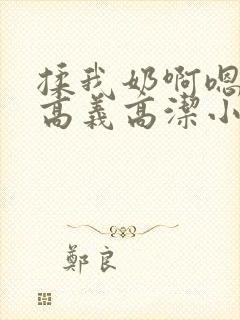 揉我奶啊嗯
高義高潔小
鄭良